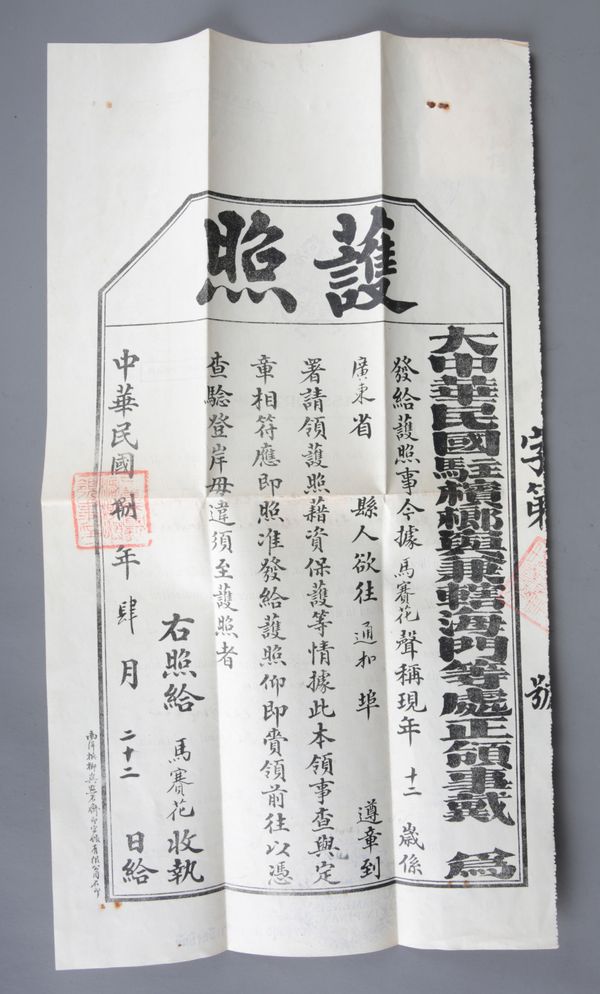 護照
字第 號
大中華民國駐檳榔嶼兼轄海門等處正領事戴 為
發給護照事今據馬賽花聲稱現年十二歲係
廣東省 縣人欲往 埠 遵章到
署請領護照藉資保護等情據此本領事查與定
章相符應即照准發給護照仰即賫領前往以憑
查驗登岸毋違須至護照者
右照給 馬賽花收執
中華民國捌年肆月二十二日給